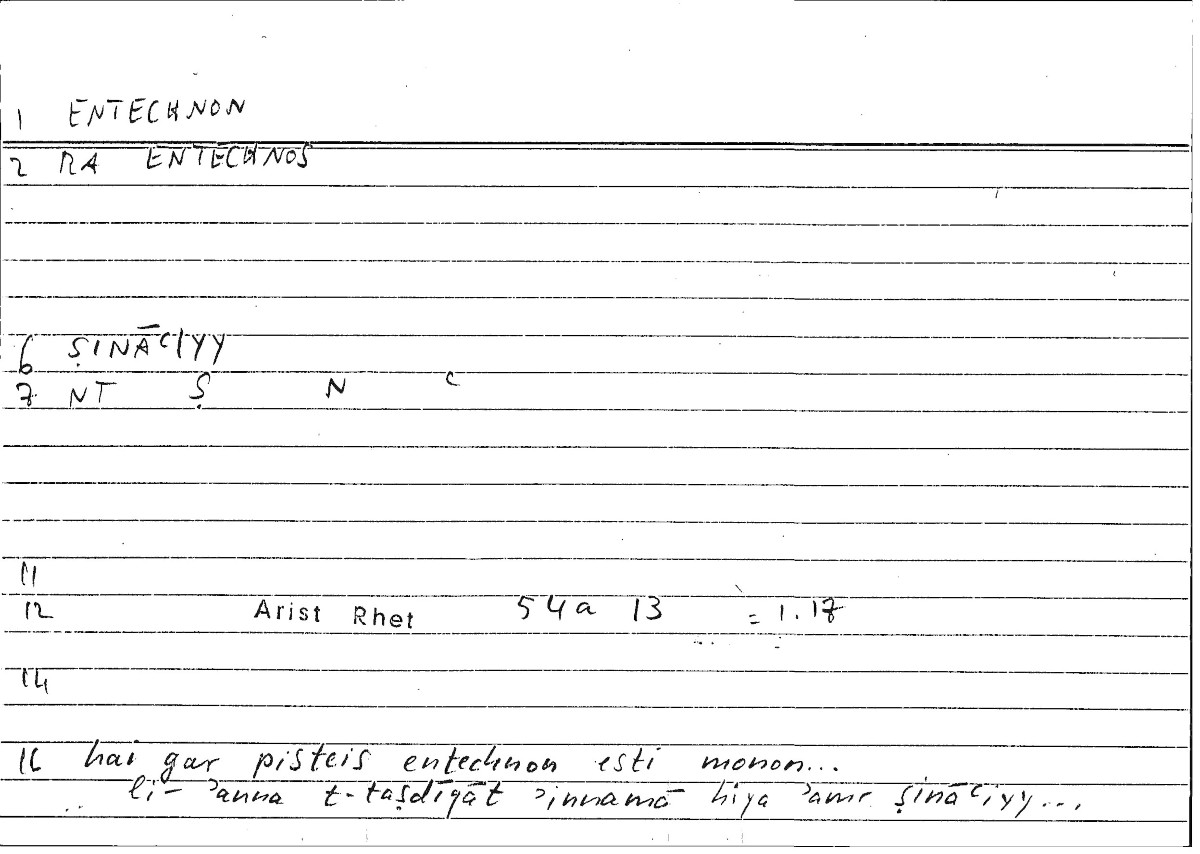 1 ENTECHNON
2 RA ENTECHNOS
6 ṢINĀʿIYY
7 NT Ṣ N ʿ
11
12 Arist Rhet 54a 13 = 1.17
14
16 hai gar pisteis entechnon esti monon...
li-ʾanna t-taṣdīqāt ʾinnamā hiya ʾamr ṣināʿiyy...